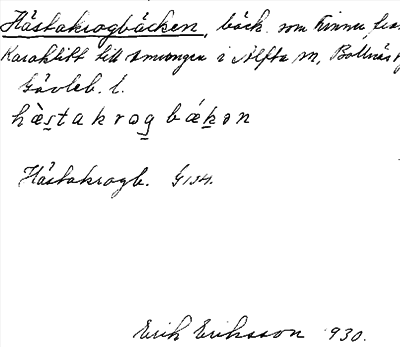 Håstakrogbäcken, bäck som rinner från
Karsklitt till Amungen i Alfta sn, Bollnäs
Gävleb. l.
hæ̀stakrog bǽkən
Håstakrogb. G134.
Erik Eriksson 1930.